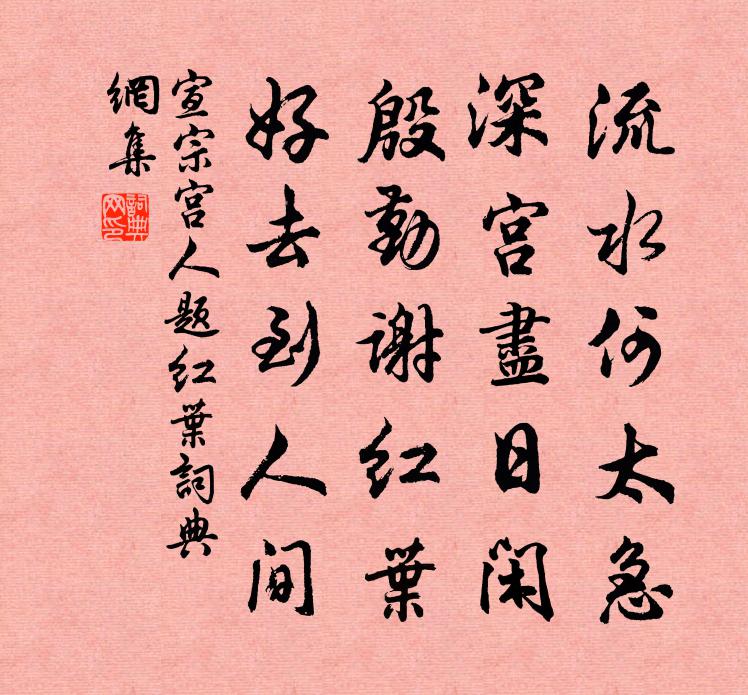 流水何太急
深宮盡日闲
殷勤謝红葉
好去到人間
宣宗宫人题红葉詞典
網集
詞典网印